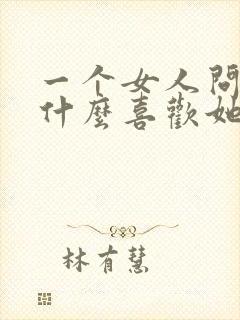 一个女人問
什麼喜歡她
林有慧